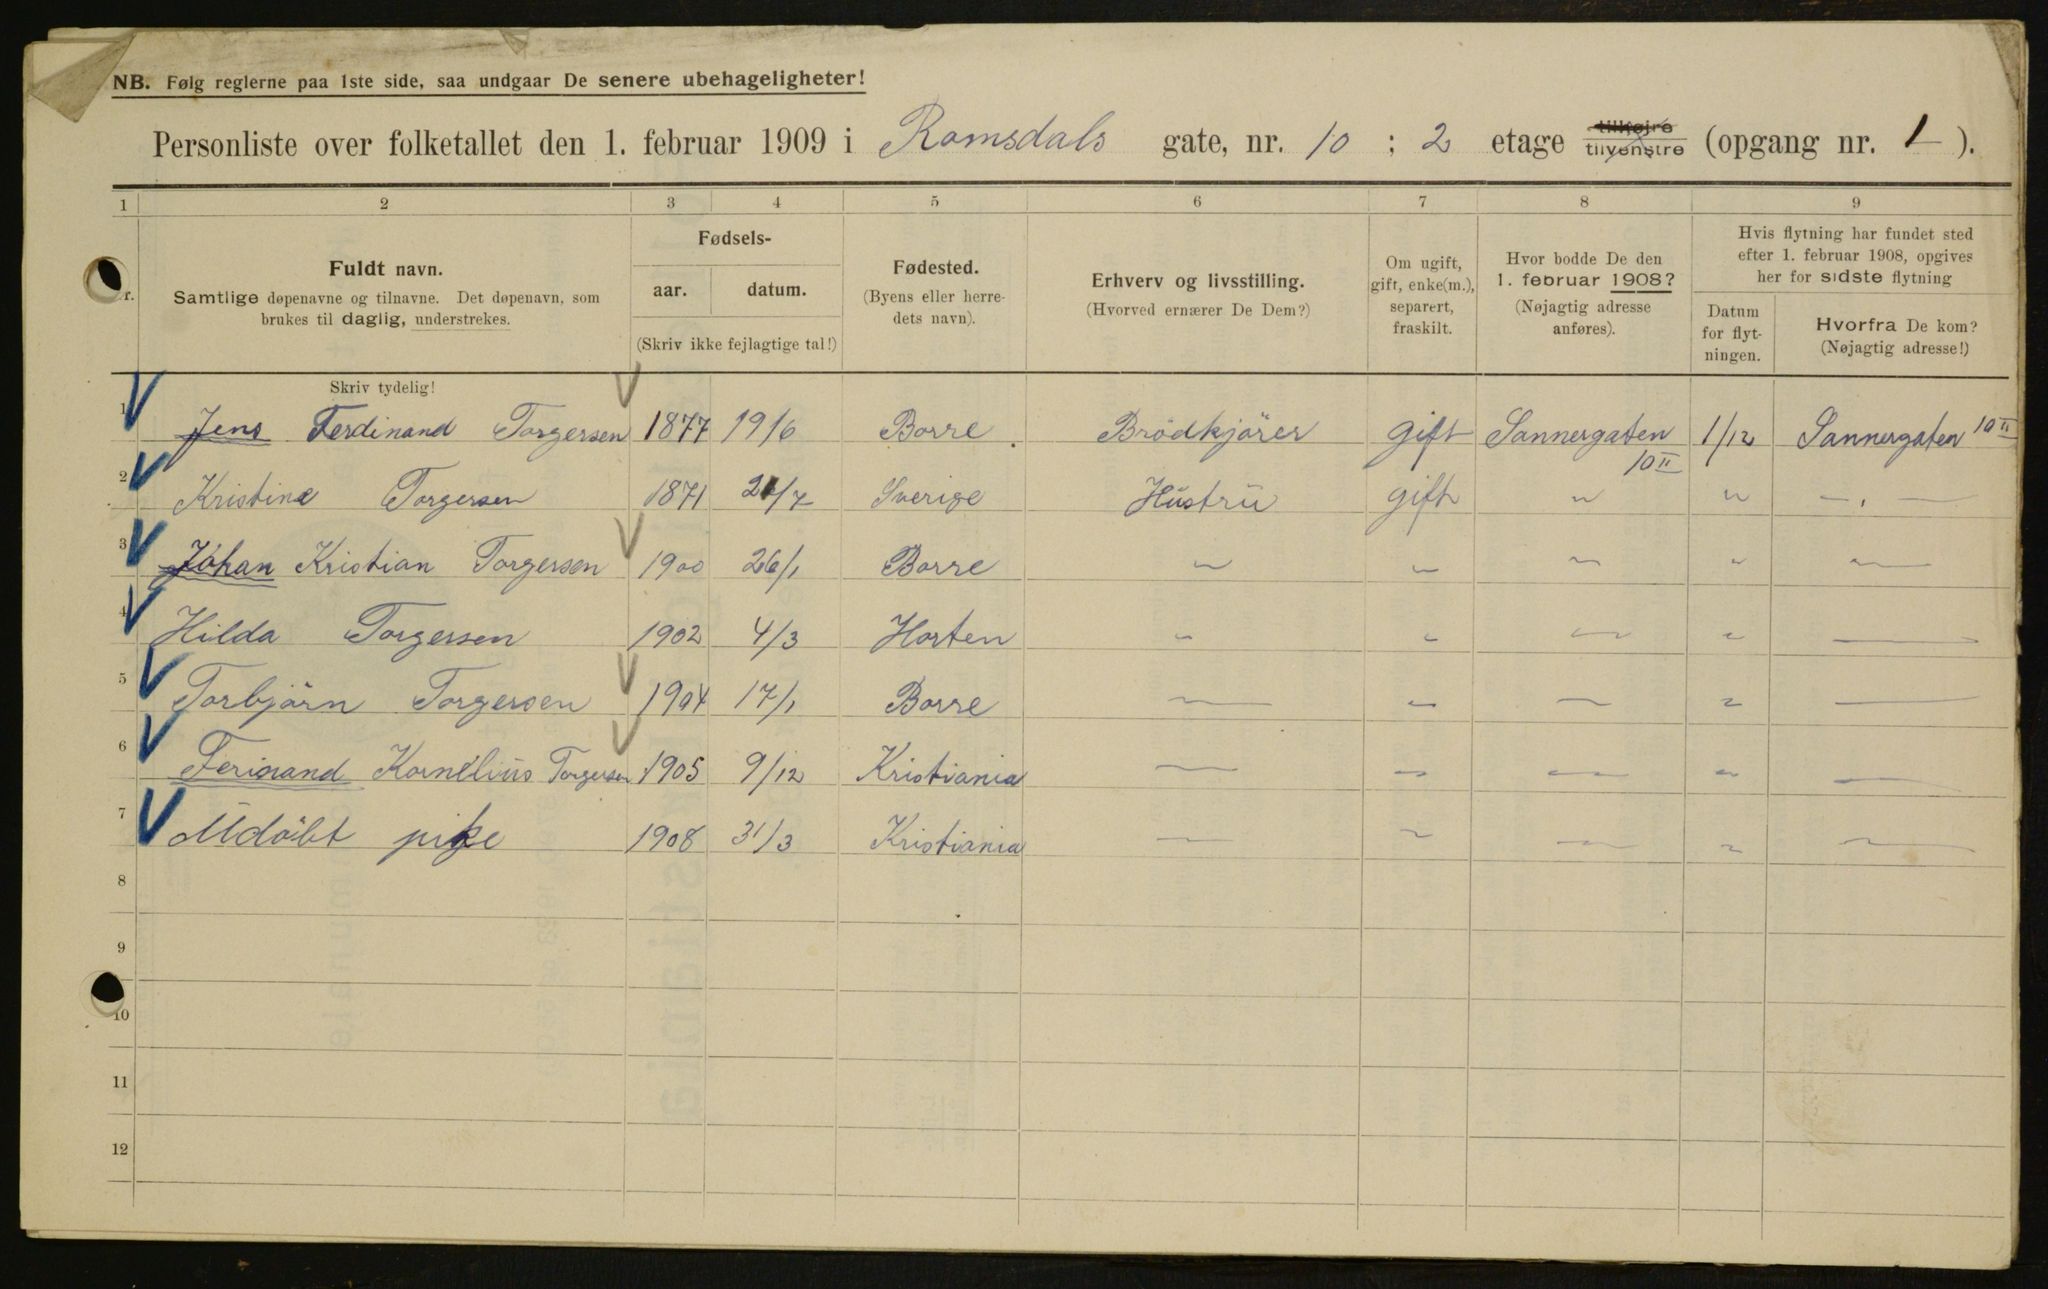 NB. Følg reglerne paa 1ste side, saa undgaar De senere ubehageligheter!
Personliste over folketallet den 1. februar 1909 i Romsdals gate, nr. 10 ; 2 etage tilhøjre tilvenstre (opgang nr. 1 ).
1 2 3 4 5 6 7 8 9
Fuldt navn.
Samtlige døpenavne og tilnavne. Det døpenavn, som
brukes til daglig, understrekes.
Fødsels-
aar. datum.
(Skriv ikke fejlagtige tal!)
Fødested.
(Byens eller herre-
dets navn).
Erhverv og livsstilling.
(Hvorved ernærer De Dem?)
Om ugift,
gift, enke(m.),
separert,
fraskilt.
Hvor bodde De den
1. februar 1908?
(Nøjagtig adresse
anføres).
Hvis flytning har fundet sted
efter 1. februar 1908, opgives
her for sidste flytning
Datum
for flyt-
ningen.
Hvorfra De kom?
(Nøjagtig adresse!)
r.
Skriv tydelig!
1 Jens Ferdinand Torgersen 1877 19/6 Borre Brödkjörer gift Sannergaten 10 II 1/12 Sannergaten 10 II
2 Kristine Torgersen 1871 /7 Sverige Hüstrü gift " " — " —
3 Johan Kristian Torgersen 1900 26/1 Borre " " " " —
4 Hilda Torgersen 1902 4/3 Horten " " — " —
5 Torbjörn Torgersen 1904 17/1 Borre — " — " —
6 Ferinand Kornelius Torgersen 1905 9/12 Kristiania — " — " —
7 Udöbt pike 1908 31/3 Kristiania — " — " —
8
9
10
11
12